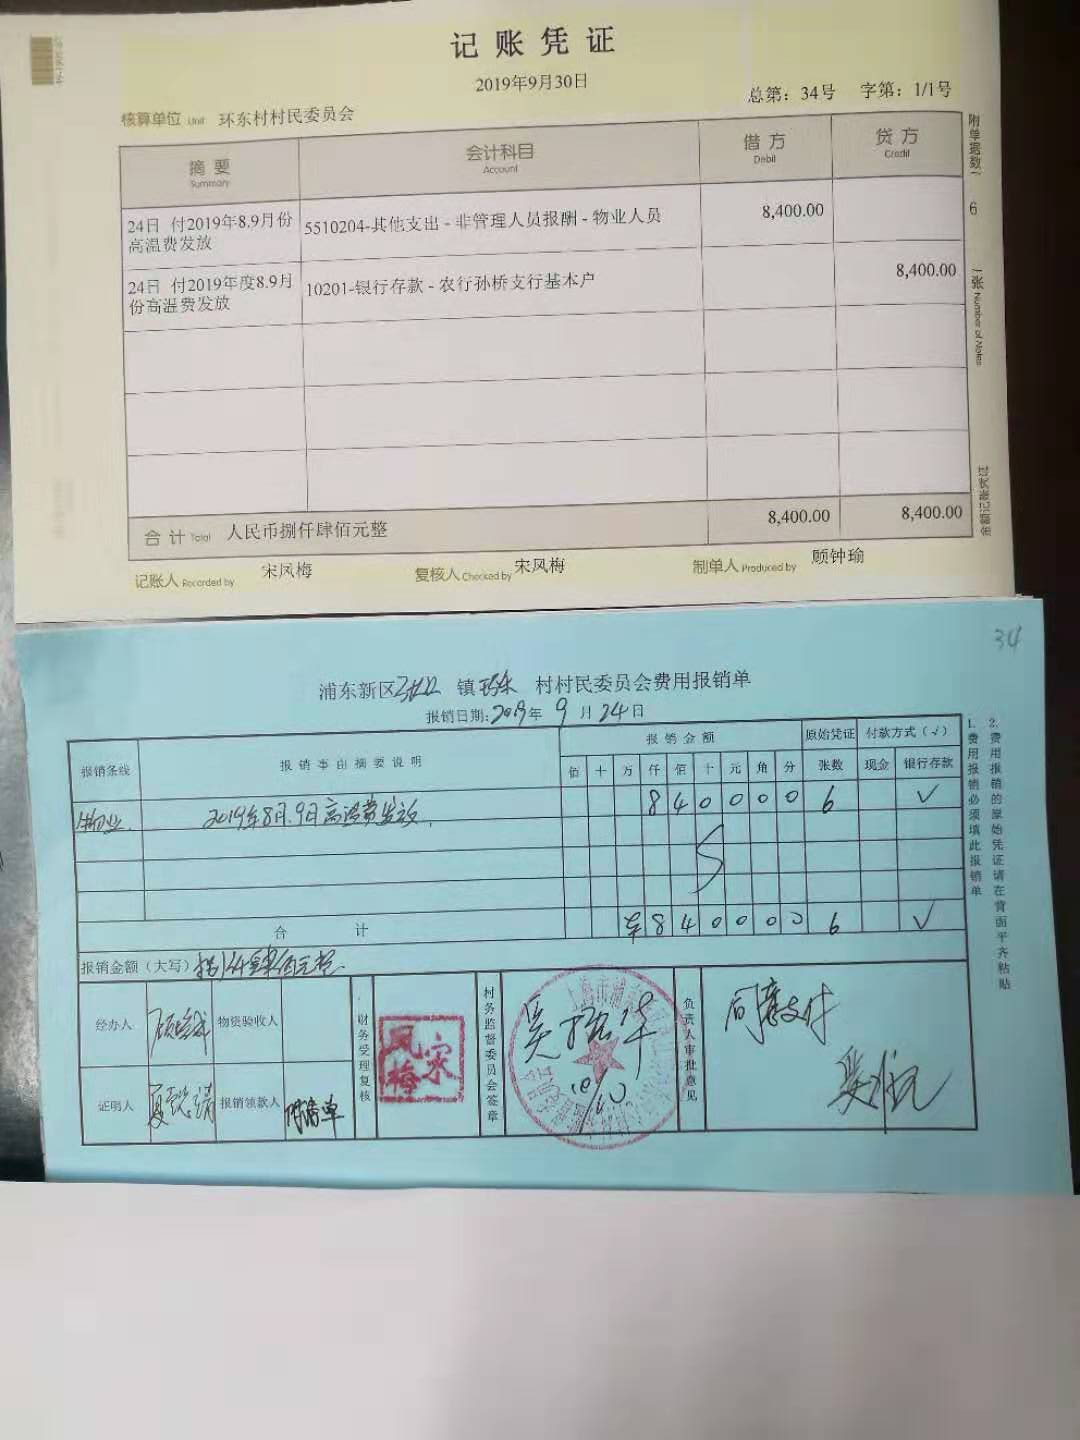 记账凭证
2019年9月30日
总第：34号 字第：1/1号
核算单位 Unit 环东村村民委员会
摘要 Summary 会计科目 Account 借方 Debit 贷方 Credit
24日 付2019年8.9月份高温费发放 5510204-其他支出 - 非管理人员报酬 - 物业人员 8,400.00
24日 付2019年度8.9月份高温费发放 10201-银行存款 - 农行孙桥支行基本户 8,400.00
合计 Total 人民币捌仟肆佰元整 8,400.00 8,400.00
记账人 Recorded by 宋凤梅 复核人 Checked by 宋凤梅 制单人 Produced by 顾钟瑜
附单据数 6 张 Number of Notes
金额记账凭证
34
浦东新区 张江 镇 环东 村村民委员会费用报销单
报销日期:2019年 9 月 24日
报销条线 报销事由摘要说明 报销金额 原始凭证张数 付款方式（√）
佰 十 万 仟 佰 十 元 角 分 现金 银行存款
物业 2019年8月.9月高温费发放 8 4 0 0 0 0 6 √
合计 ¥ 8 4 0 0 0 0 6 √
报销金额（大写） 捌仟肆佰元整
经办人 物资验收人
证明人 报销领款人
财务受理复核
宋凤梅
村务监督委员会签章
10/10
负责人审批意见
同意支付
1.费用报销必须填此报销单
2.费用报销的原始凭证请在背面平齐粘贴